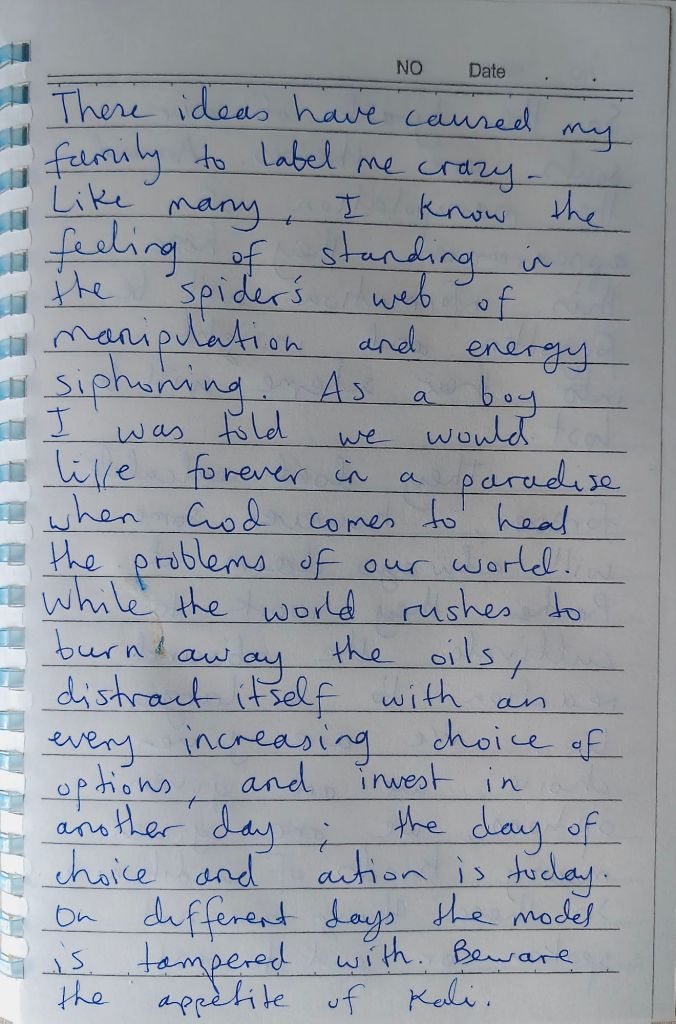 NO Date . .
These ideas have caused my
family to label me crazy.
Like many, I know the
feeling of standing in
the spider's web of
manipulation and energy
siphoning. As a boy
I was told we would
live forever in a paradise
when God comes to heal
the problems of our world.
While the world rushes to
burn away the oils,
distract itself with an
every increasing choice of
options, and invest in
another day ; the day of
choice and action is today.
On different days the model
is tampered with. Beware
the appetite of Kali.